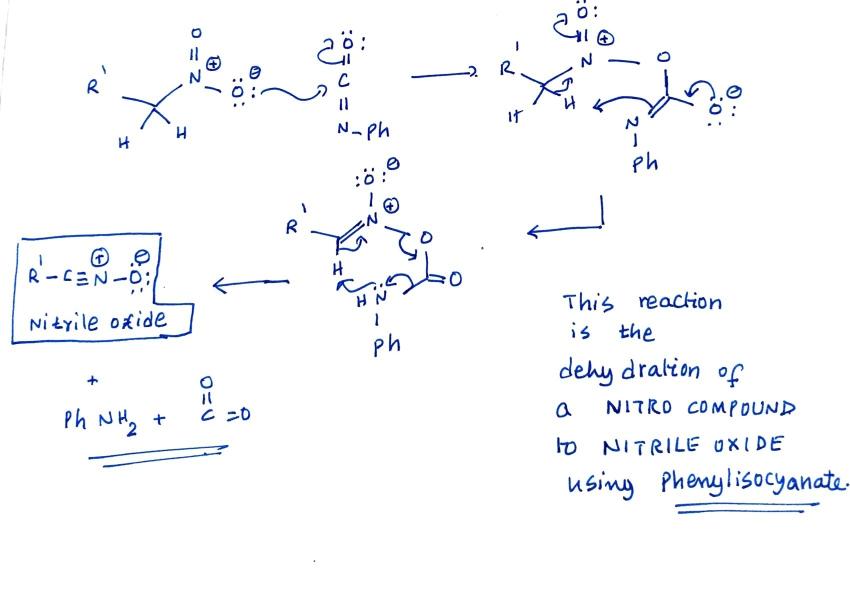 O
R' N ⊕ Ö: ⊖
H H
:Ö:
C
N-Ph
Ö:
R' N ⊕ O
H H
N Ö: ⊖
Ph
:Ö: ⊖
R' N ⊕ O
H
H N =O
Ph
R'-C≡N-Ö: ⊕ ⊖
Nitrile oxide
+
PhNH2 + C=O
O
This reaction
is the
dehydration of
a NITRO COMPOUND
to NITRILE OXIDE
using Phenylisocyanate.